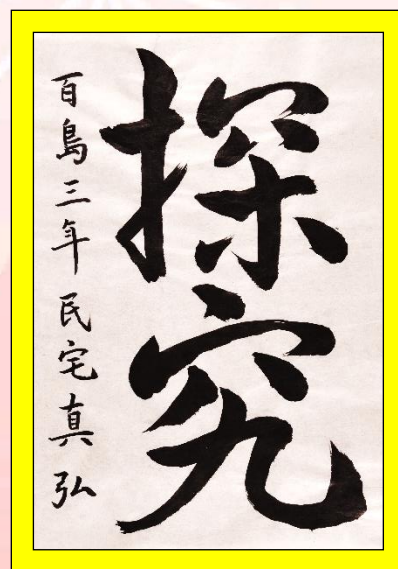 探究
百島三年民宅真弘